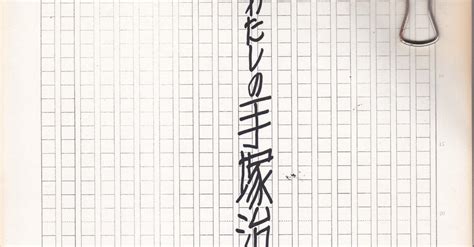 わたしの手塚治